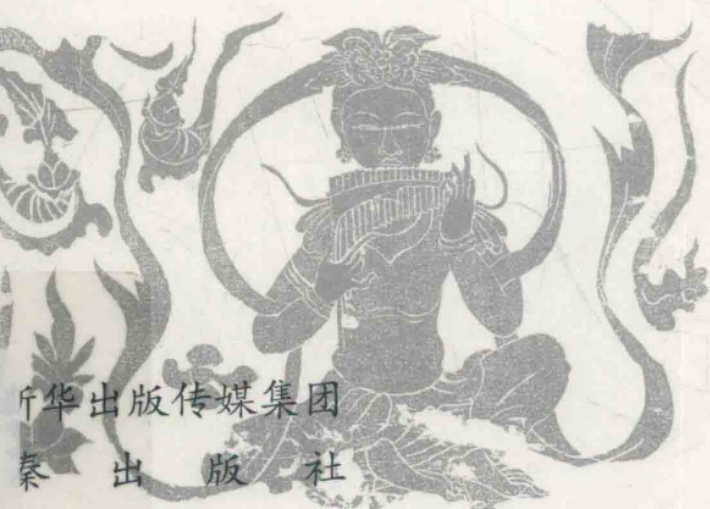 华出版传媒集团
秦出版社